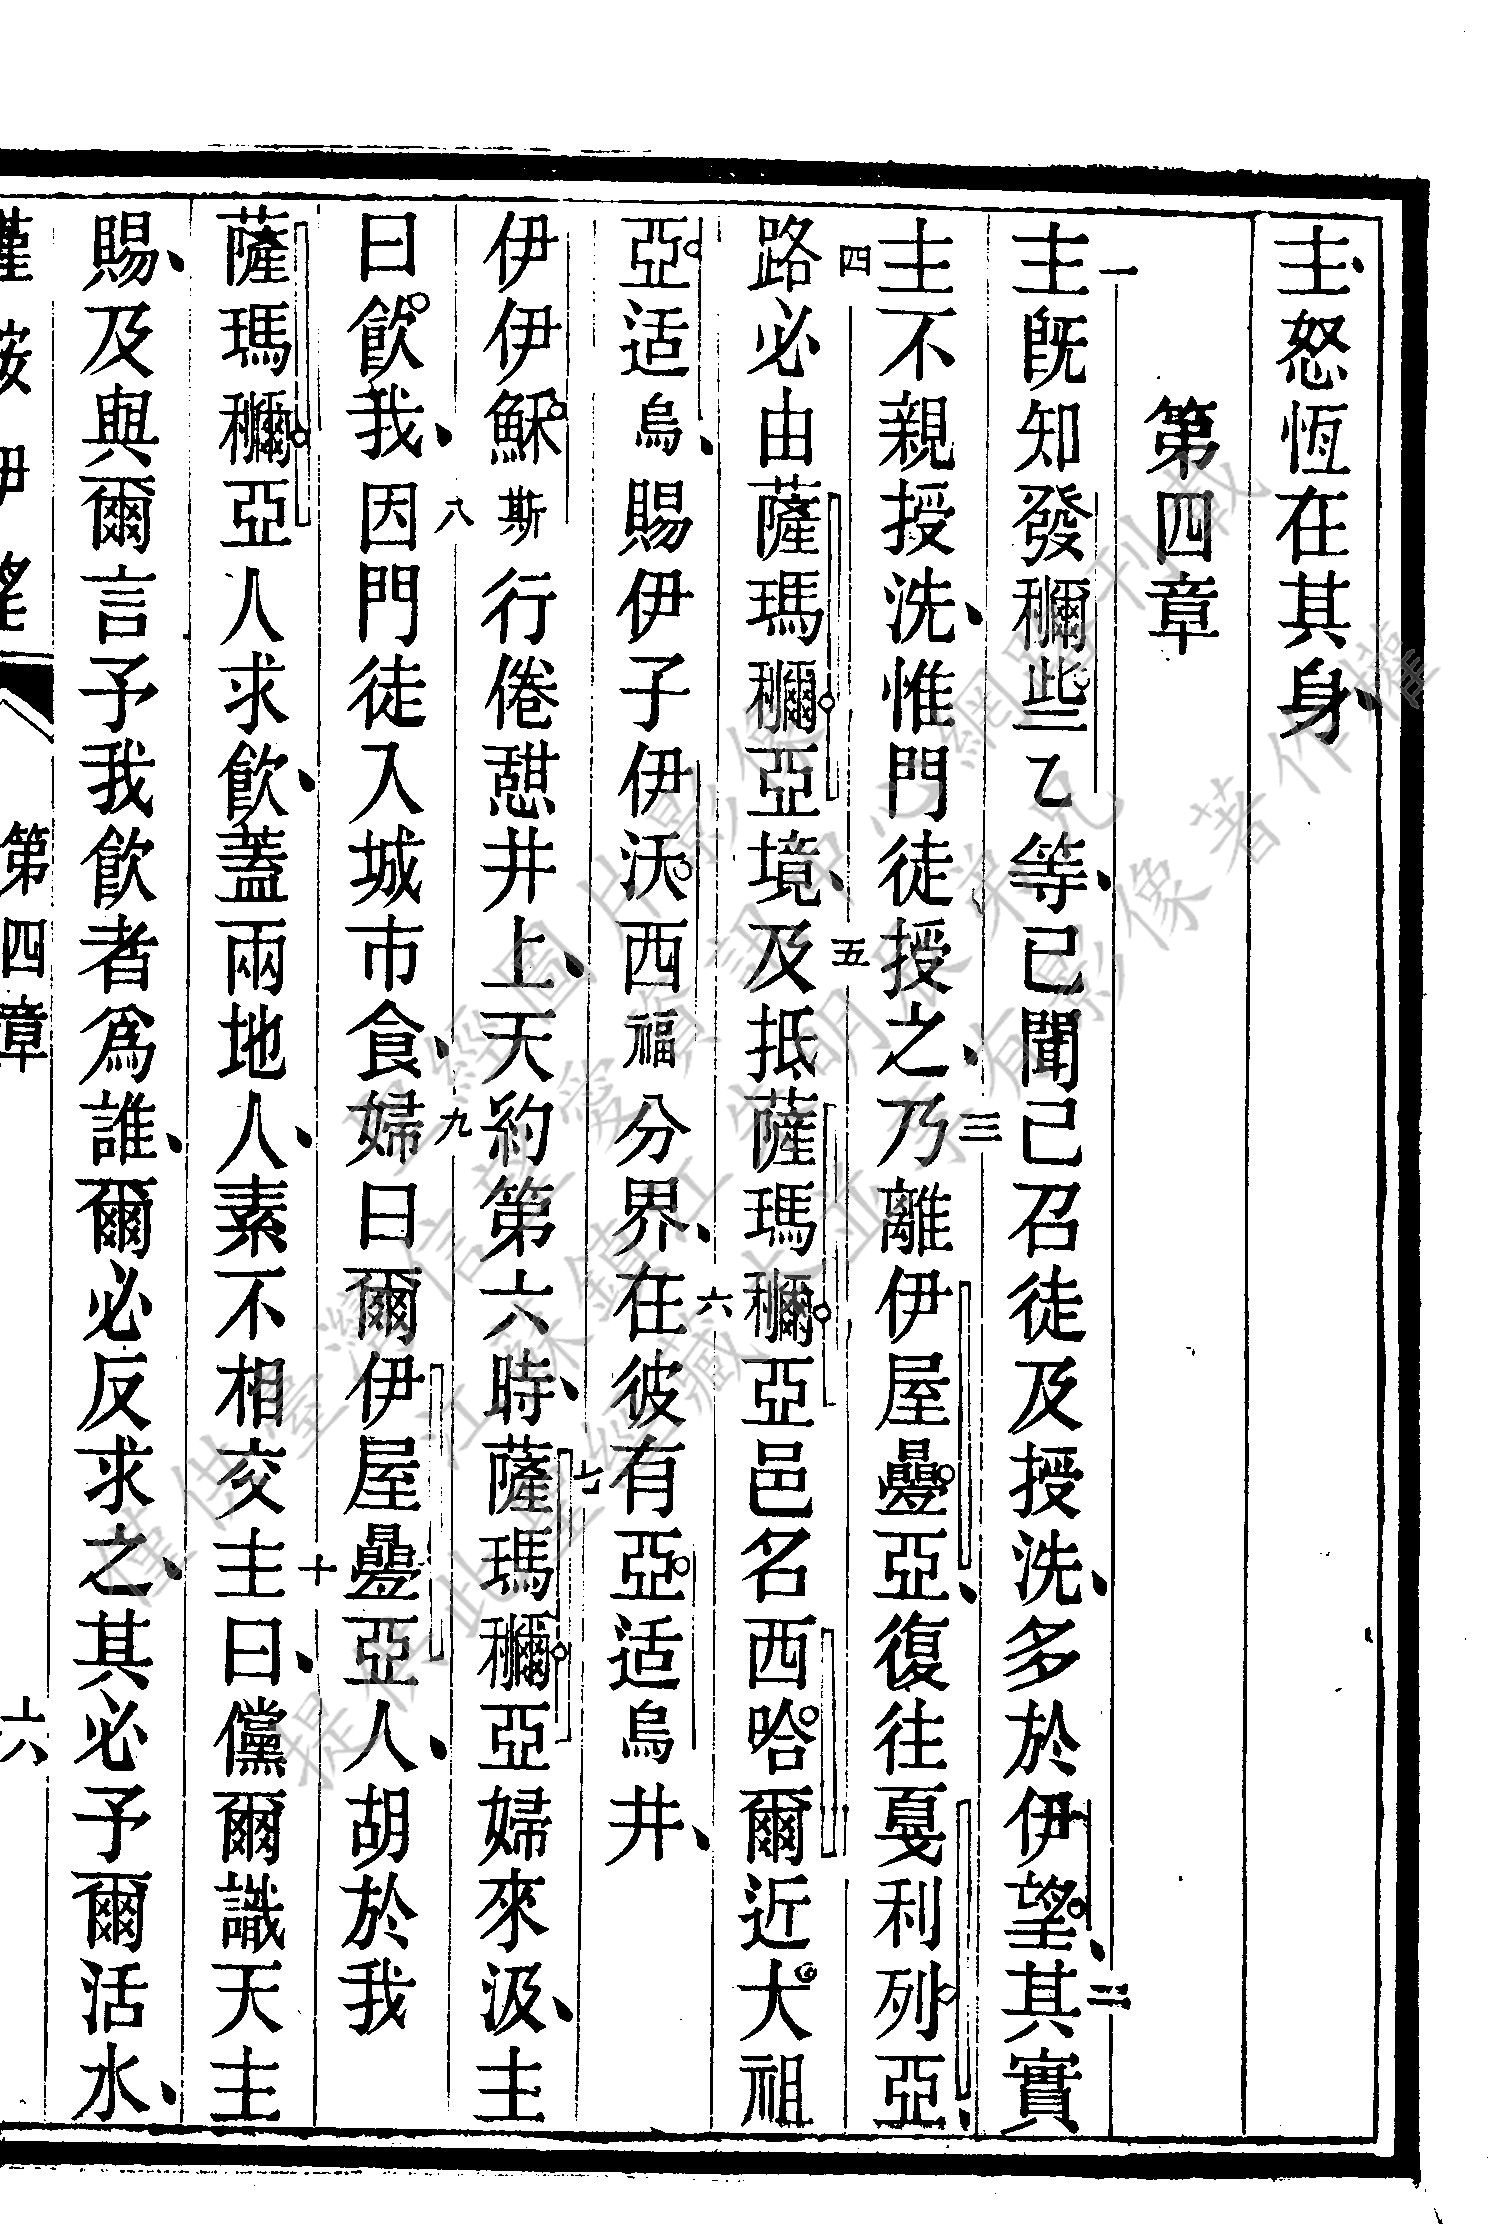 主怒恆在其身、
第四章
一主旣知發穪些乙等、已聞己召徒及授洗、多於伊望、二其實
主不親授洗、惟門徒授之、三乃離伊屋疊亞、復往戛利列亞、
四路必由薩瑪穪亞境、五及抵薩瑪穪亞邑名西哈爾近大祖
亞适烏、賜伊子伊沃西福分界、六在彼有亞适烏井、
伊伊穌斯行倦憇井上、天約第六時、七薩瑪穪亞婦來汲、主
曰飮我、八因門徒入城市食、九婦曰爾伊屋疊亞人、胡於我
薩瑪穪亞人求飮、蓋兩地人、素不相交、十主曰、儻爾識天主
賜、及與爾言予我飮者爲誰、爾必反求之、其必予爾活水、
第四章
六